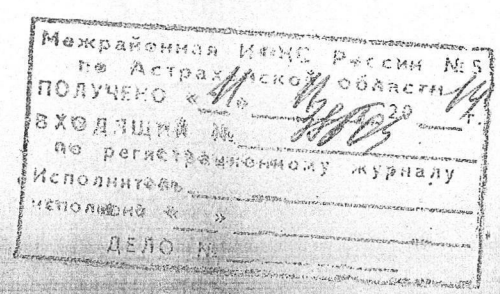 Межрайонная ИФНС России № 5
по Астраханской области
ПОЛУЧЕНО « 11 » 20 г.
ВХОДЯЩИЙ №
по регистрационному журналу
Исполнитель
исполнено « »
ДЕЛО №